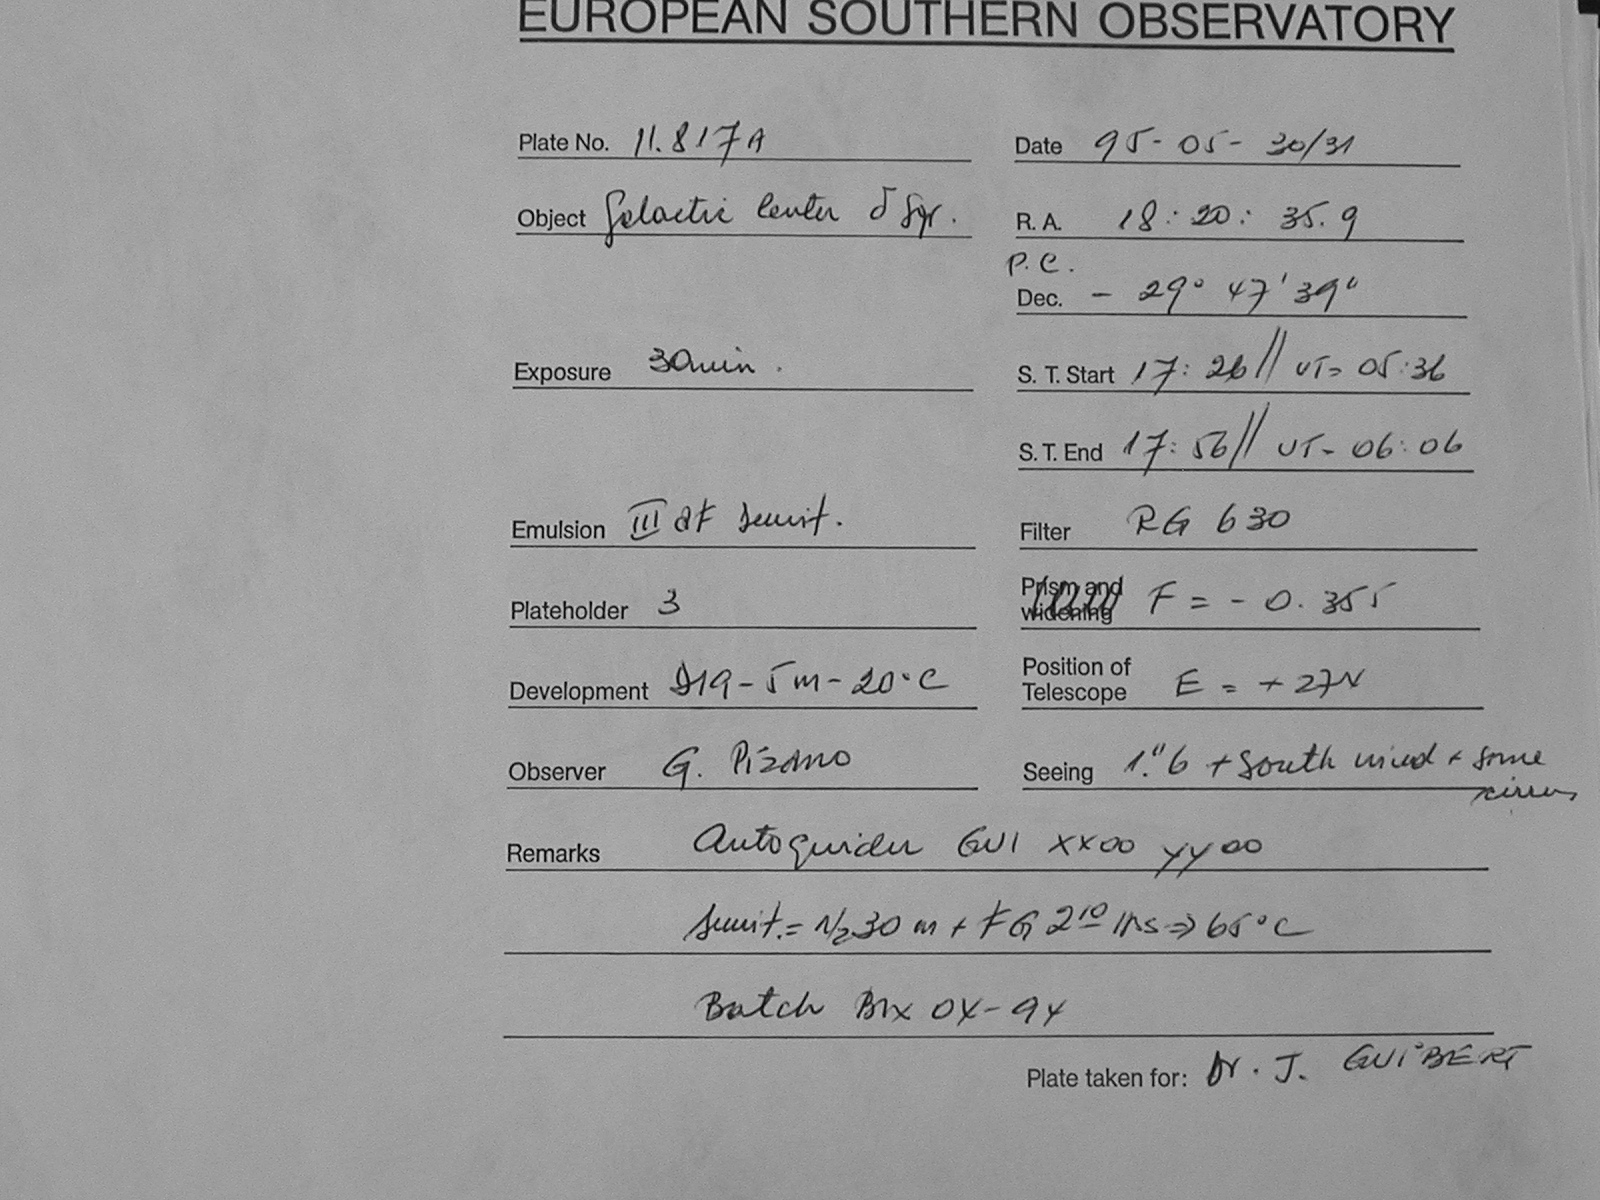 EUROPEAN SOUTHERN OBSERVATORY
Plate No. 11.817A
Date 95-05-30/31
Object Galactic Center δ Sgr.
R. A. 18:20:35.9
P.C.
Dec. - 29° 47' 39"
Exposure 30min.
S. T. Start 17:26 // UT= 05:36
S. T. End 17:56 // UT- 06:06
Emulsion III aF sensit.
Filter RG 630
Plateholder 3
Prism and widening F = - 0.355
Development D19-5m-20°C
Position of Telescope E = +27
Observer G. Pizarro
Seeing 1."6 + South wind + some cirrus
Remarks Autoguider GUI XX00 YY00
sensit.= N2 30 m + FG 2 10 hrs => 65°C
Batch
Plate taken for: Dr. J. GUIBERT